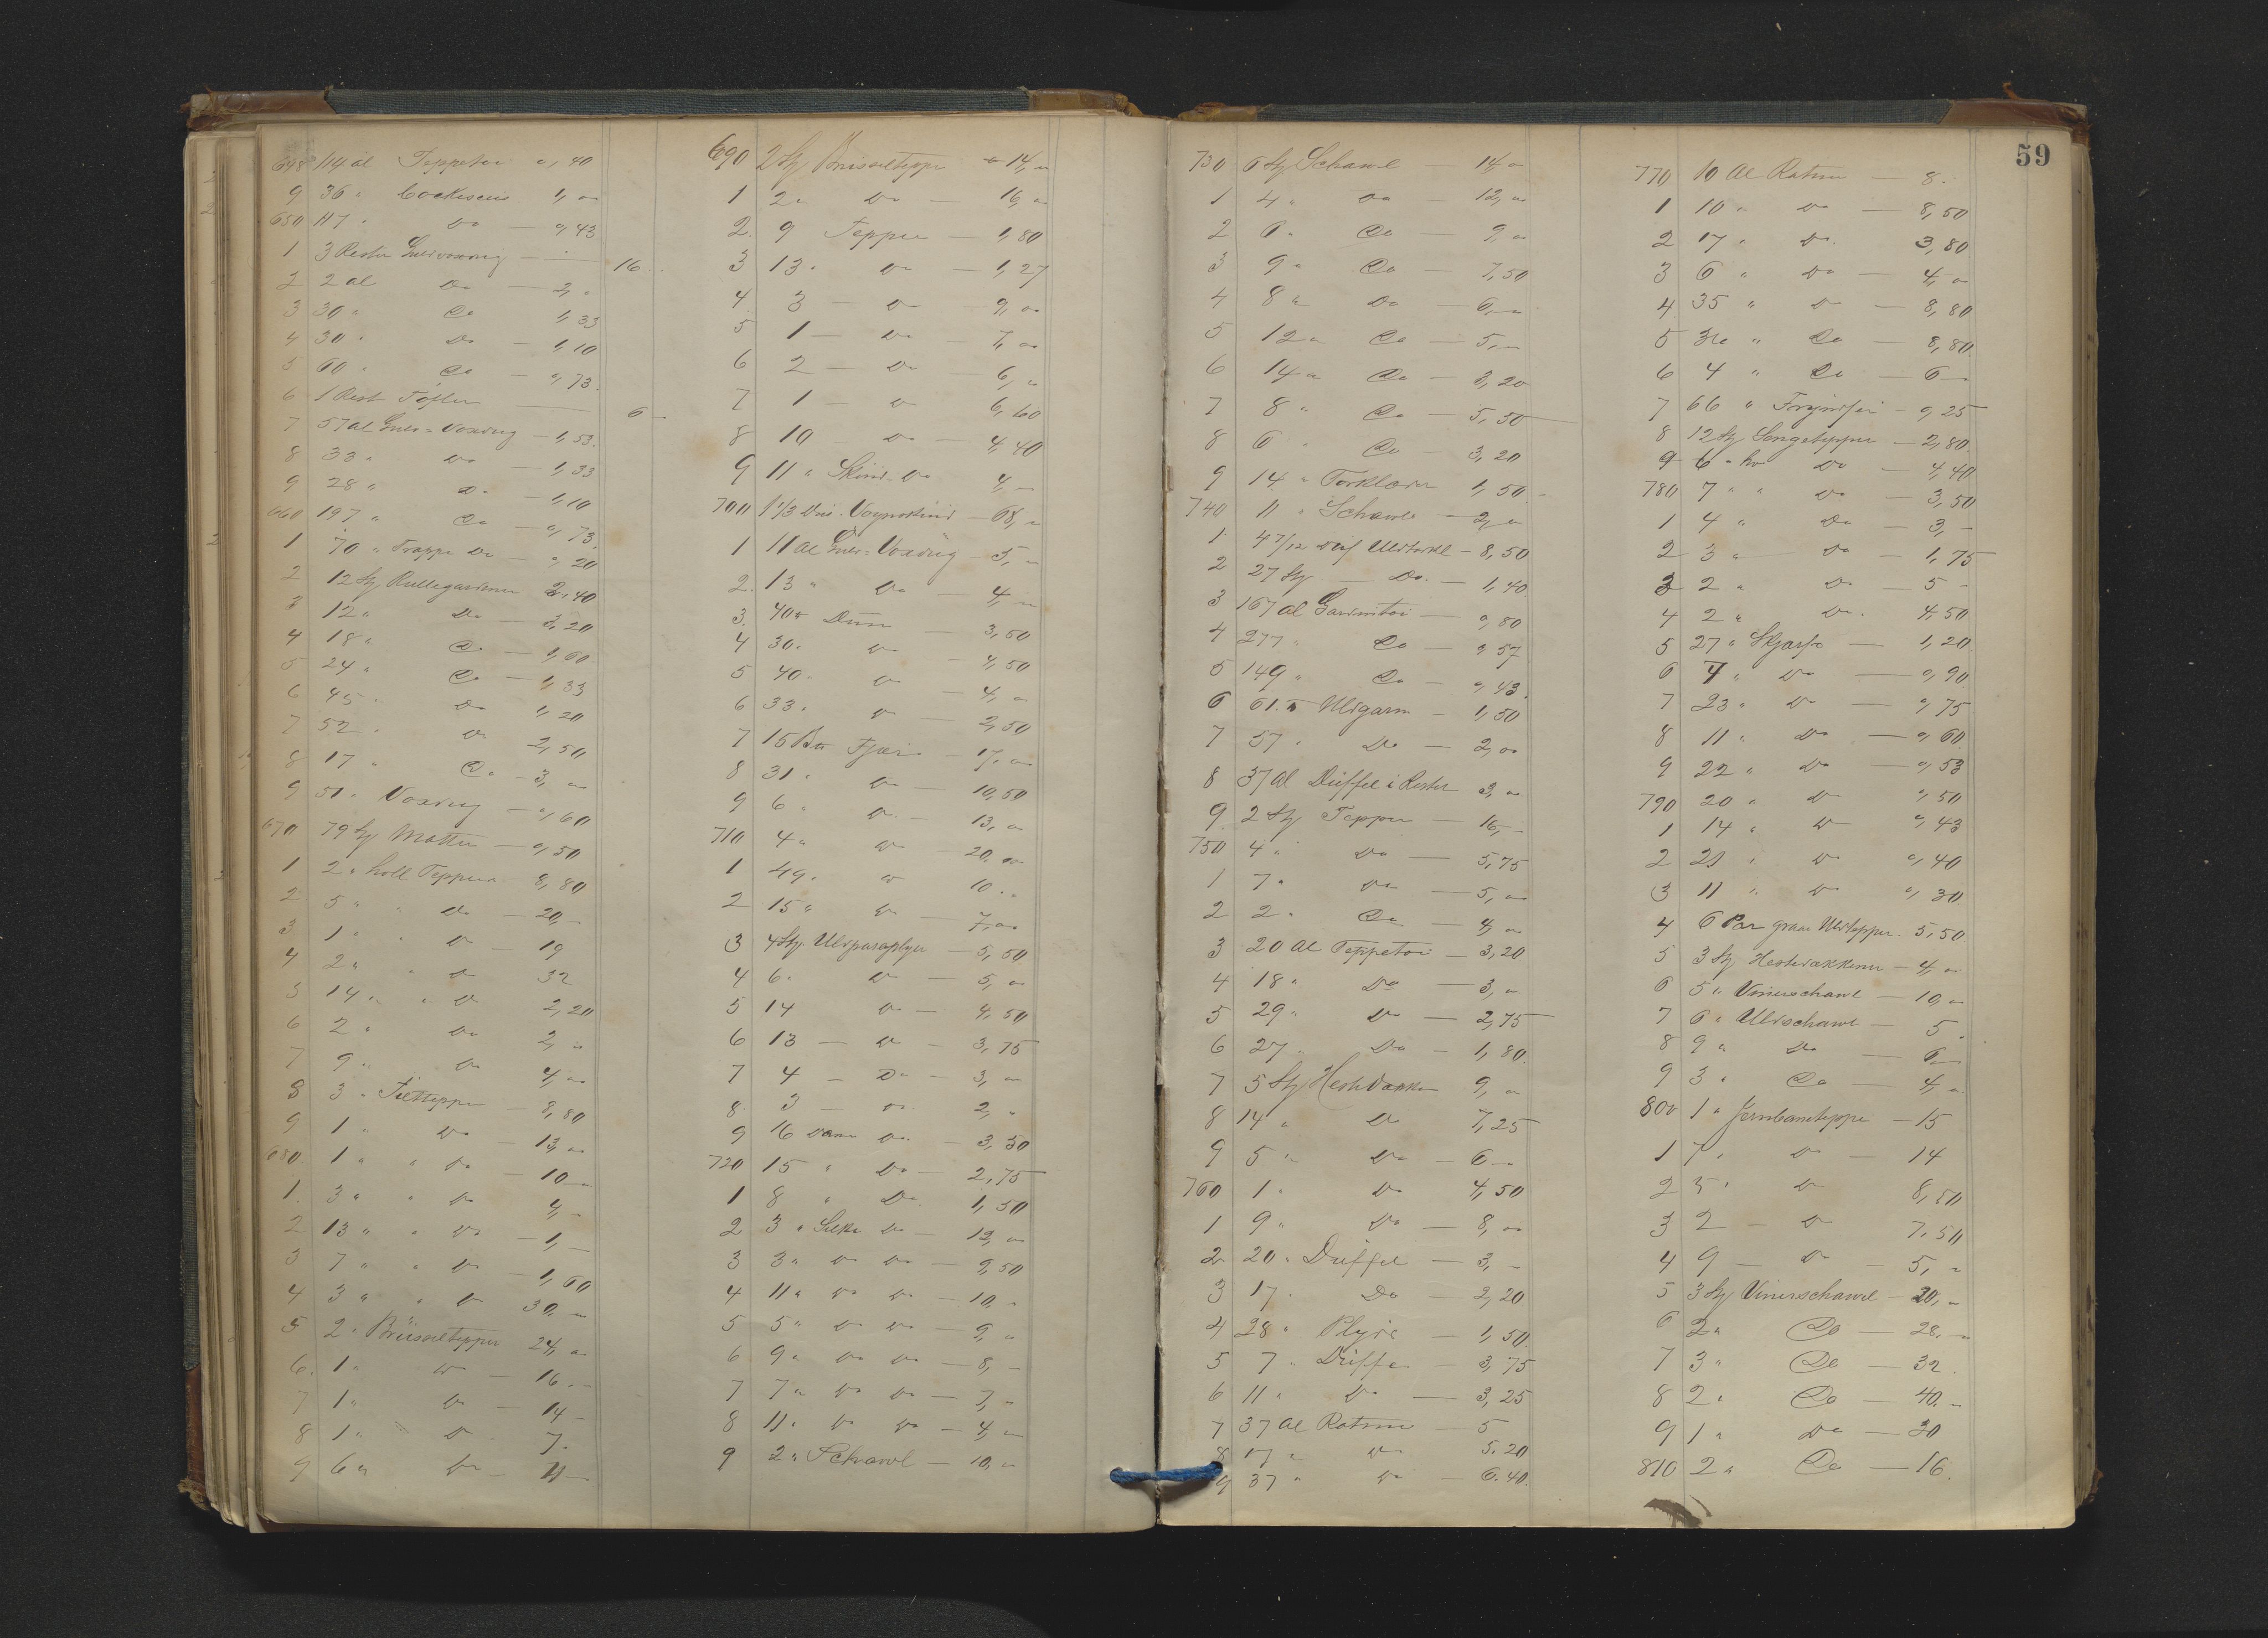 648 114 al Teppetøi 0,40
9 36 " Cockuscuis 1,00
650 117 " Do — 0,43
1 3 Rester Gulvvoxdug — 16
2 2 al Do — 2,"
3 30 " Do 1,33
4 30 " Do — 1,10
5 60 " Do — 0,73
6 1 Rest Tøfler — 6 —
7 57 al Gulv=Voxdug — 1,53
8 33 " Do — 1,33
9 28 " Do — 1,10
660 197 " Do — 0,73
1 70 " Trappe Do — 0,20
2 12 Stk Rullegardiner 2,40
3 12 " Do — 3,20
4 18 " Do — 1,60
5 24 " Do — 1,33
6 45 " Do 1,20
7 52 " Do 2,50
8 17 " Do — 3,00
9 51 " Voxdug — 0,60
670 79 Stk Matter — 0,50
1 2 " holl Tepper 8,80
2 5 " " Do — 20,—
3 1 " " Do — 19
4 2 " " Do 32
5 14 " " Do 2,20
6 2 " Do 2,"
7 9 " Do 4,00
8 3 " Filttepper — 8,80
9 1 " Do — 13,00
680 1 " " Do — 10 —
1 3 " " Do 4,—
2 13 " " Do — 1,—
3 7 " " Do — 1,60
4 3 " " Do 30,—
5 2 " Brüsseltepper 24,00
6 1 " Do — 16.—
7 1 " Do — 14 —
8 1 " Do 7.
9 6 " Do — 11 —
690 2 Stk Brüsseltepper — 14,00
1 2 " Do — 16,00
2 9 Tepper — 1,80
3 13 " Do — 1,27
4 3 — Do — 9,00
5 1 — Do — 7,00
6 2 — Do — 6,"
7 1 — Do 6,60
8 10 — Do — 4,40
9 11 " Skind Do 4,—
700 1 1/3 Dus. Vognskind — 68,00
1 11 al Gulv=Voxdug — 5,"
2 13 " Do — 4,00
3 40 ℔ Dun — 3,50
4 30 " Do — 4,50
5 40 " Do — 4,00
6 33 " Do — 2,50
7 15 B℔ Fjær — 17,00
8 31 " Do — 10,50
9 6 " Do — 13,00
710 4 " Do — 20,00
1 49 " Do 10..
2 15 " Do — 7,00
3 4 Stk Uldparaplyer — 5,50
4 6 " Do — 5,00
5 14 Do — 4,50
6 13 — Do — 3,75
7 4 — Do — 3,00
8 3 — Do 2,"
9 16 Dame Do — 3,50
720 15 " Do — 2,75
1 8 " Do 1,50
2 3 " Silke Do — 12,00
3 3 " Do Do — 9,50
4 11 " Do Do — 10,"
5 5 " Do Do — 9,"
6 9 " Do Do — 8,—
7 7 " Do Do — 7,"
8 11 " Do Do — 4,00
9 2 " Schawl — 10,00
59
730 6 Stk Schawl — 14,00
1 4 " Do — 12,00
2 6 " Do — 9,00
3 9 " Do — 7,50
4 8 " Do — 6,00
5 12 " Do — 5,00
6 14 " Do — 3,20
7 8 " Do — 5,50
8 6 " Do — 3,20
9 14 " Forklæder 1,50
740 11 " Schawl — 2,00
1 4 7/12 Dus Uldtørkl — 8,50
2 27 Stk — Do — 1,40
3 167 al Gardintøi — 0,80
4 277 " Do — 0,57
5 149 " Do — 0,43
6 61 ℔ Uldgarn — 1,50
7 57 " Do — 2,00
8 37 al Düffel i Rester 3,00
9 2 Stk Tepper — 16,—
750 4 " Do — 5,75
1 7 " Do — 5,00
2 2 " Do — 4,00
3 20 al Teppetøi — 3,20
4 18 " Do — 3,00
5 29 " Do — 2,75
6 27 " Do — 1,80
7 5 Stk Hestedækken 9,00
8 14 " Do 7,25
9 5 " Do — 6 —
760 1 " Do 4,50
1 9 " Do — 8,00
2 20 " Düffel — 3,—
3 17 " Do — 2,20
4 28 " Plyds — 1,50
5 7 " Düffel — 3,75
6 11 " Do — 3,25
7 37 al Ratine — 5
8 17 " Do 5.20
9 37 " Do — 6.40
770 10 al Ratine — 8.
1 10 " Do — 8,50
2 17 " Do 3,80
3 6 " Do — 4,00
4 35 " Do — 8,80
5 36 " Do — 8,80
6 4 " Do — 6 —
7 66 " — 0,25
8 12 Stk Sengetepper — 2,80
9 6 " hv Do — 4,40
780 7 " " Do — 3,50
1 4 " Do — 3,—
2 3 " Do — 1,75
3 2 " Do — 5 —
4 2 " Do 4,50
5 27 " Skjærf — 1,20
6 7 " Do — 0,90
7 23 " Do — 0,75
8 11 " Do — 0,60
9 22 " Do — 0,53
790 20 " Do 0,50
1 14 " Do 0,43
2 21 " Do 0,40
3 11 " Do 0,30
4 6 Par graae Uldtepper 5,50
5 3 Stk Hestedækkener — 4,00
6 5 " Vinerschawl — 10,00
7 6 " Uldschawl — 5
8 9 " Do — 6 —
9 3 " Do — 4,"
800 1 " Jernbanetæppe — 15
1 7 " Do — 14
2 5 " Do 8,50
3 2 — Do 7,50
4 9 — Do — 5,"
5 3 Stk Vinerschawl — 20,—
6 2 " Do — 28,—
7 3 " Do — 32
8 2 " Do — 40.—
9 1 " Do — 30
810 2 " Do — 16.